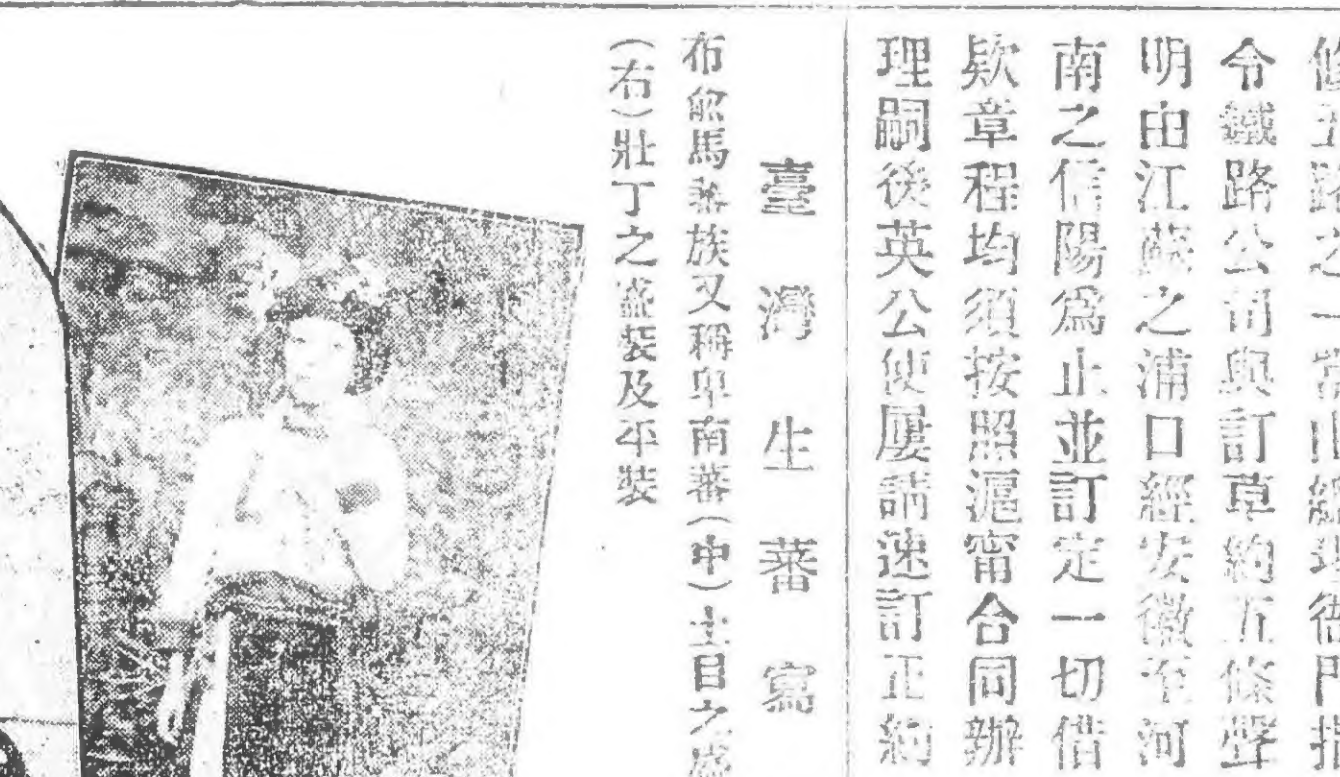 修五路之一當由總理衙門
令鐵路公司與訂草約五條聲
明由江蘇之浦口經安徽至河
南之信陽爲止並訂定一切借
欵章程均須按照滬甯合同辦
理嗣後英公使屢請速訂正約
臺灣生蕃寫
布俞馬蕃族又稱卑南蕃(中)土目之盛
(右)壯丁之盛裝及平裝